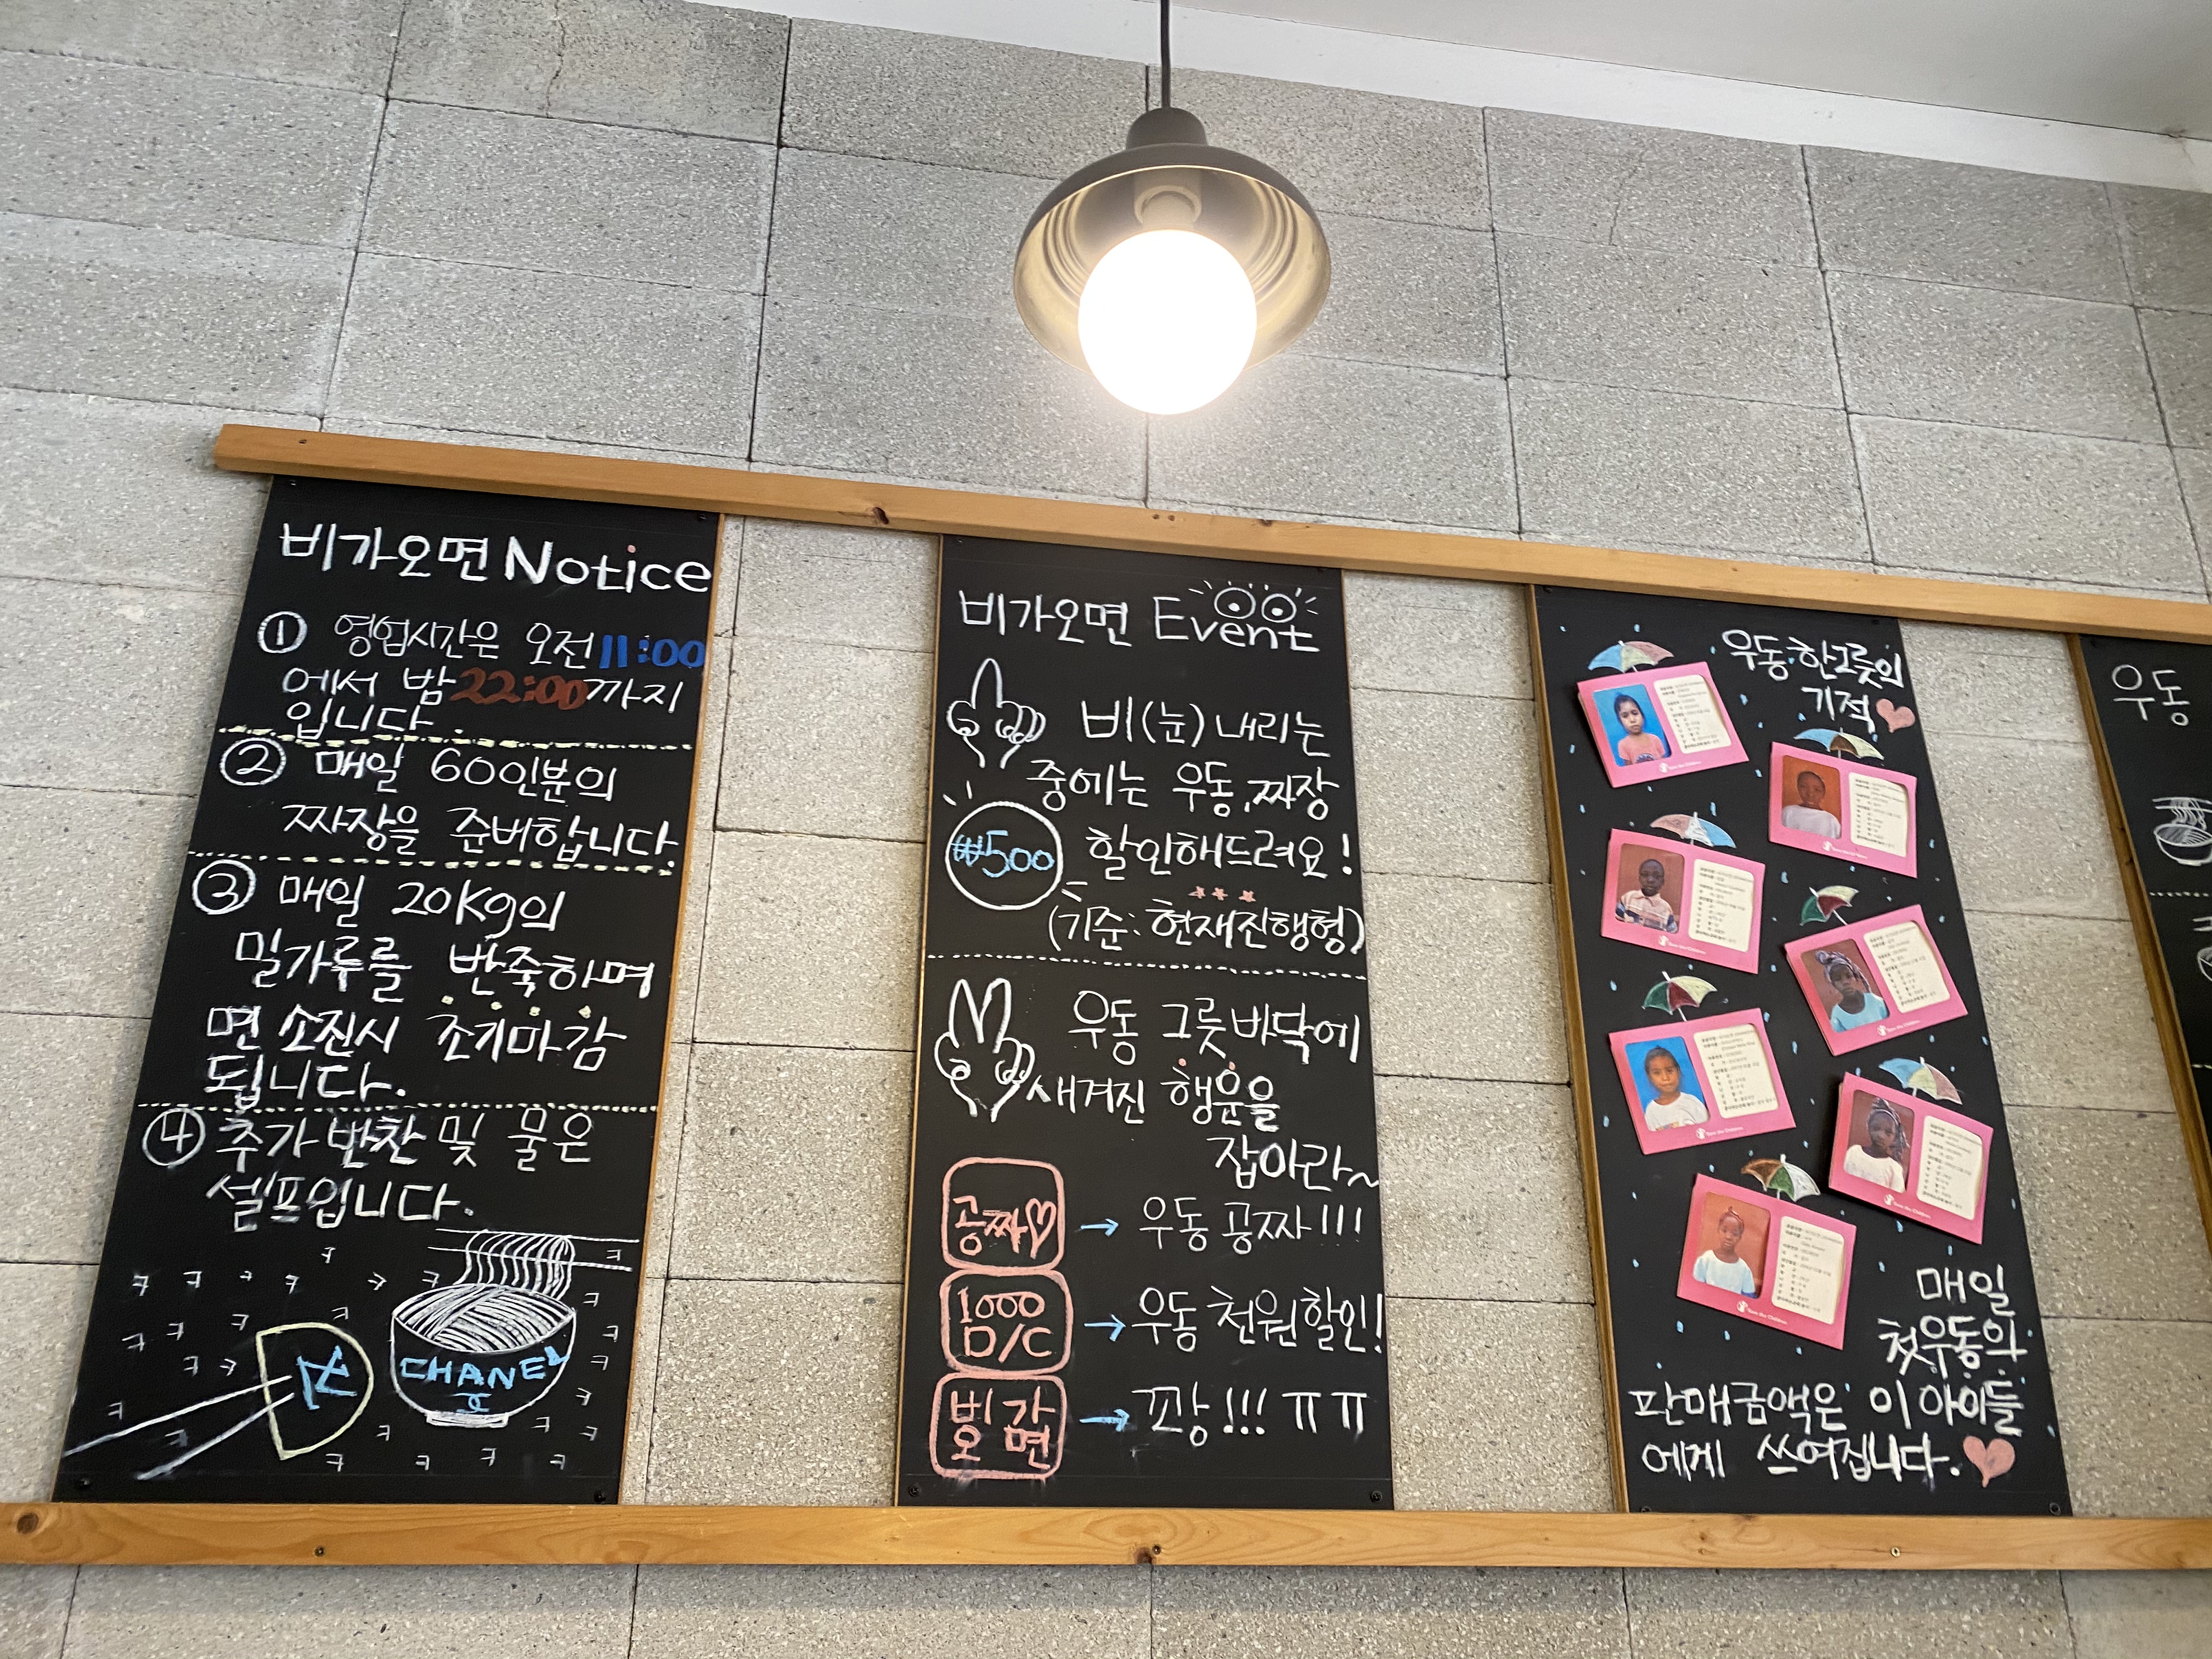 비가오면 Notice
① 영업시간은 오전 11:00
에서 밤 22:00까지
입니다.
② 매일 60인분의
짜장을 준비합니다.
③ 매일 20Kg의
밀가루를 반죽하며
면 소진시 조기마감
됩니다.
④ 추가반찬 및 물은
셀프입니다.
CHANEL
비가오면 Event
비(눈) 내리는
중에는 우동, 짜장
₩500 할인해드려요!
(기준: 현재진행형)
우동 그릇 바닥에
새겨진 행운을
잡아라~
공짜♡ → 우동 공짜!!!
1000 D/C → 우동 천원할인!
비가오면 → 꽝!!! ㅠㅠ
우동한그릇의
기적
Save the Children
Save the Children
Save the Children
Save the Children
Save the Children
Save the Children
Save the Children
매일
첫우동의
판매금액은 이 아이들
에게 쓰여집니다.
우동